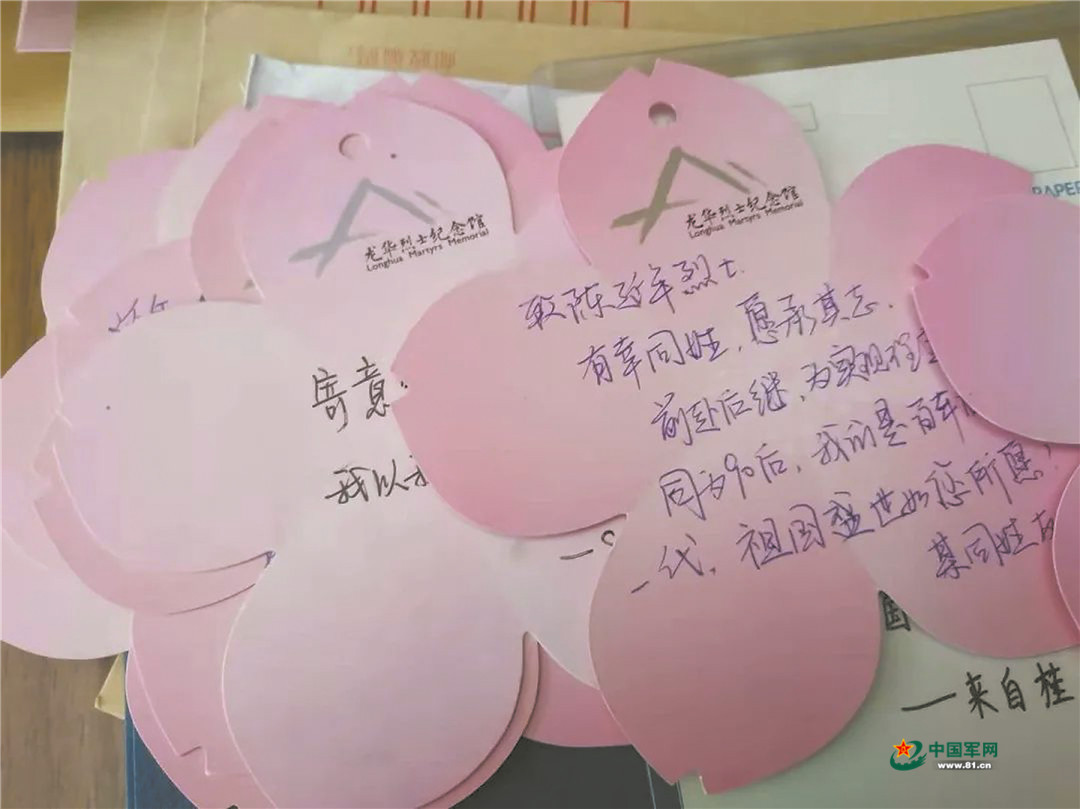 龙华烈士纪念馆
Longhua Martyrs Memorial
寄意
我以
龙华烈士纪念馆
Longhua Martyrs Memorial
致陈延年烈士
有幸同姓，愿承其志．
前赴后继，为实现
同为90后，我们是百年
一代，祖国盛世如您所愿！
某同姓
PAPER
国
—来自桂
中国军网
www.81.cn